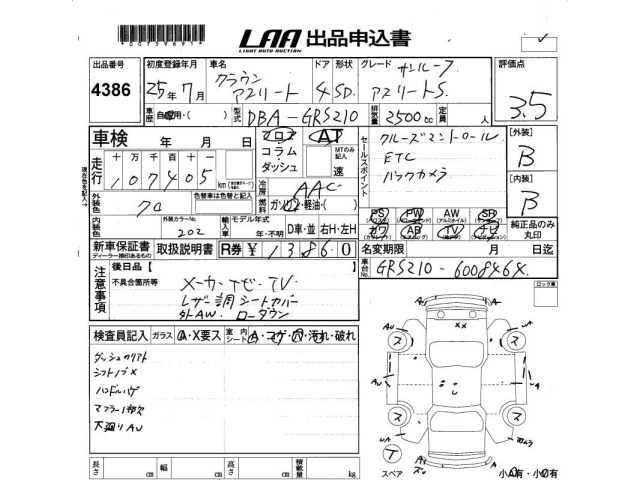 *00759691*
LAA 出品申込書
LIGHT AUTO AUCTION
出品番号 初度登録年月 車名 ドア 形状 グレード サンルーフ 評価点
4386 25年7月 クラウン アスリート 4 SD. アスリートS. 3.5
車歴 自家用・( ) 型式 DBA-GRS210 排気量 2500cc 定員 人
車検 年 月 日 フロア AT セールスポイント クルーズコントロール [外装]
走行 十万千百十 コラム・ MTのみ記入 ETC B
107405 km ダッシュ 速 バックカメラ [内装]
冷房 AAC B
外装色 クロ 色替車は色替と記入 燃料 ガソリン・軽油・( )
外装カラーNo. 202 輸入車 モデル年式 年・不明 D車・並 右H・左H
PS PW AW SR
カワ AB TV ナビ 純正品のみ丸印
新車保証書 取扱説明書 R券 ¥13860 名変期限 月 日迄
ディーラー捺印あるもの
車台No. GRS210-6008464
注意事項 後日品【 】
不具合箇所等 メーカーナビ・TV
レザー調シートカバー
外AW. ローダウン
ロック車
検査員記入 ガラス A・X要ス 室内シート A・コゲ・穴・汚れ・破れ
シフトノブ X
ハンドルハゲ
下廻りAU
長さ cm 幅 cm 高さ cm 積載量 kg
スペア 小A有・小U有